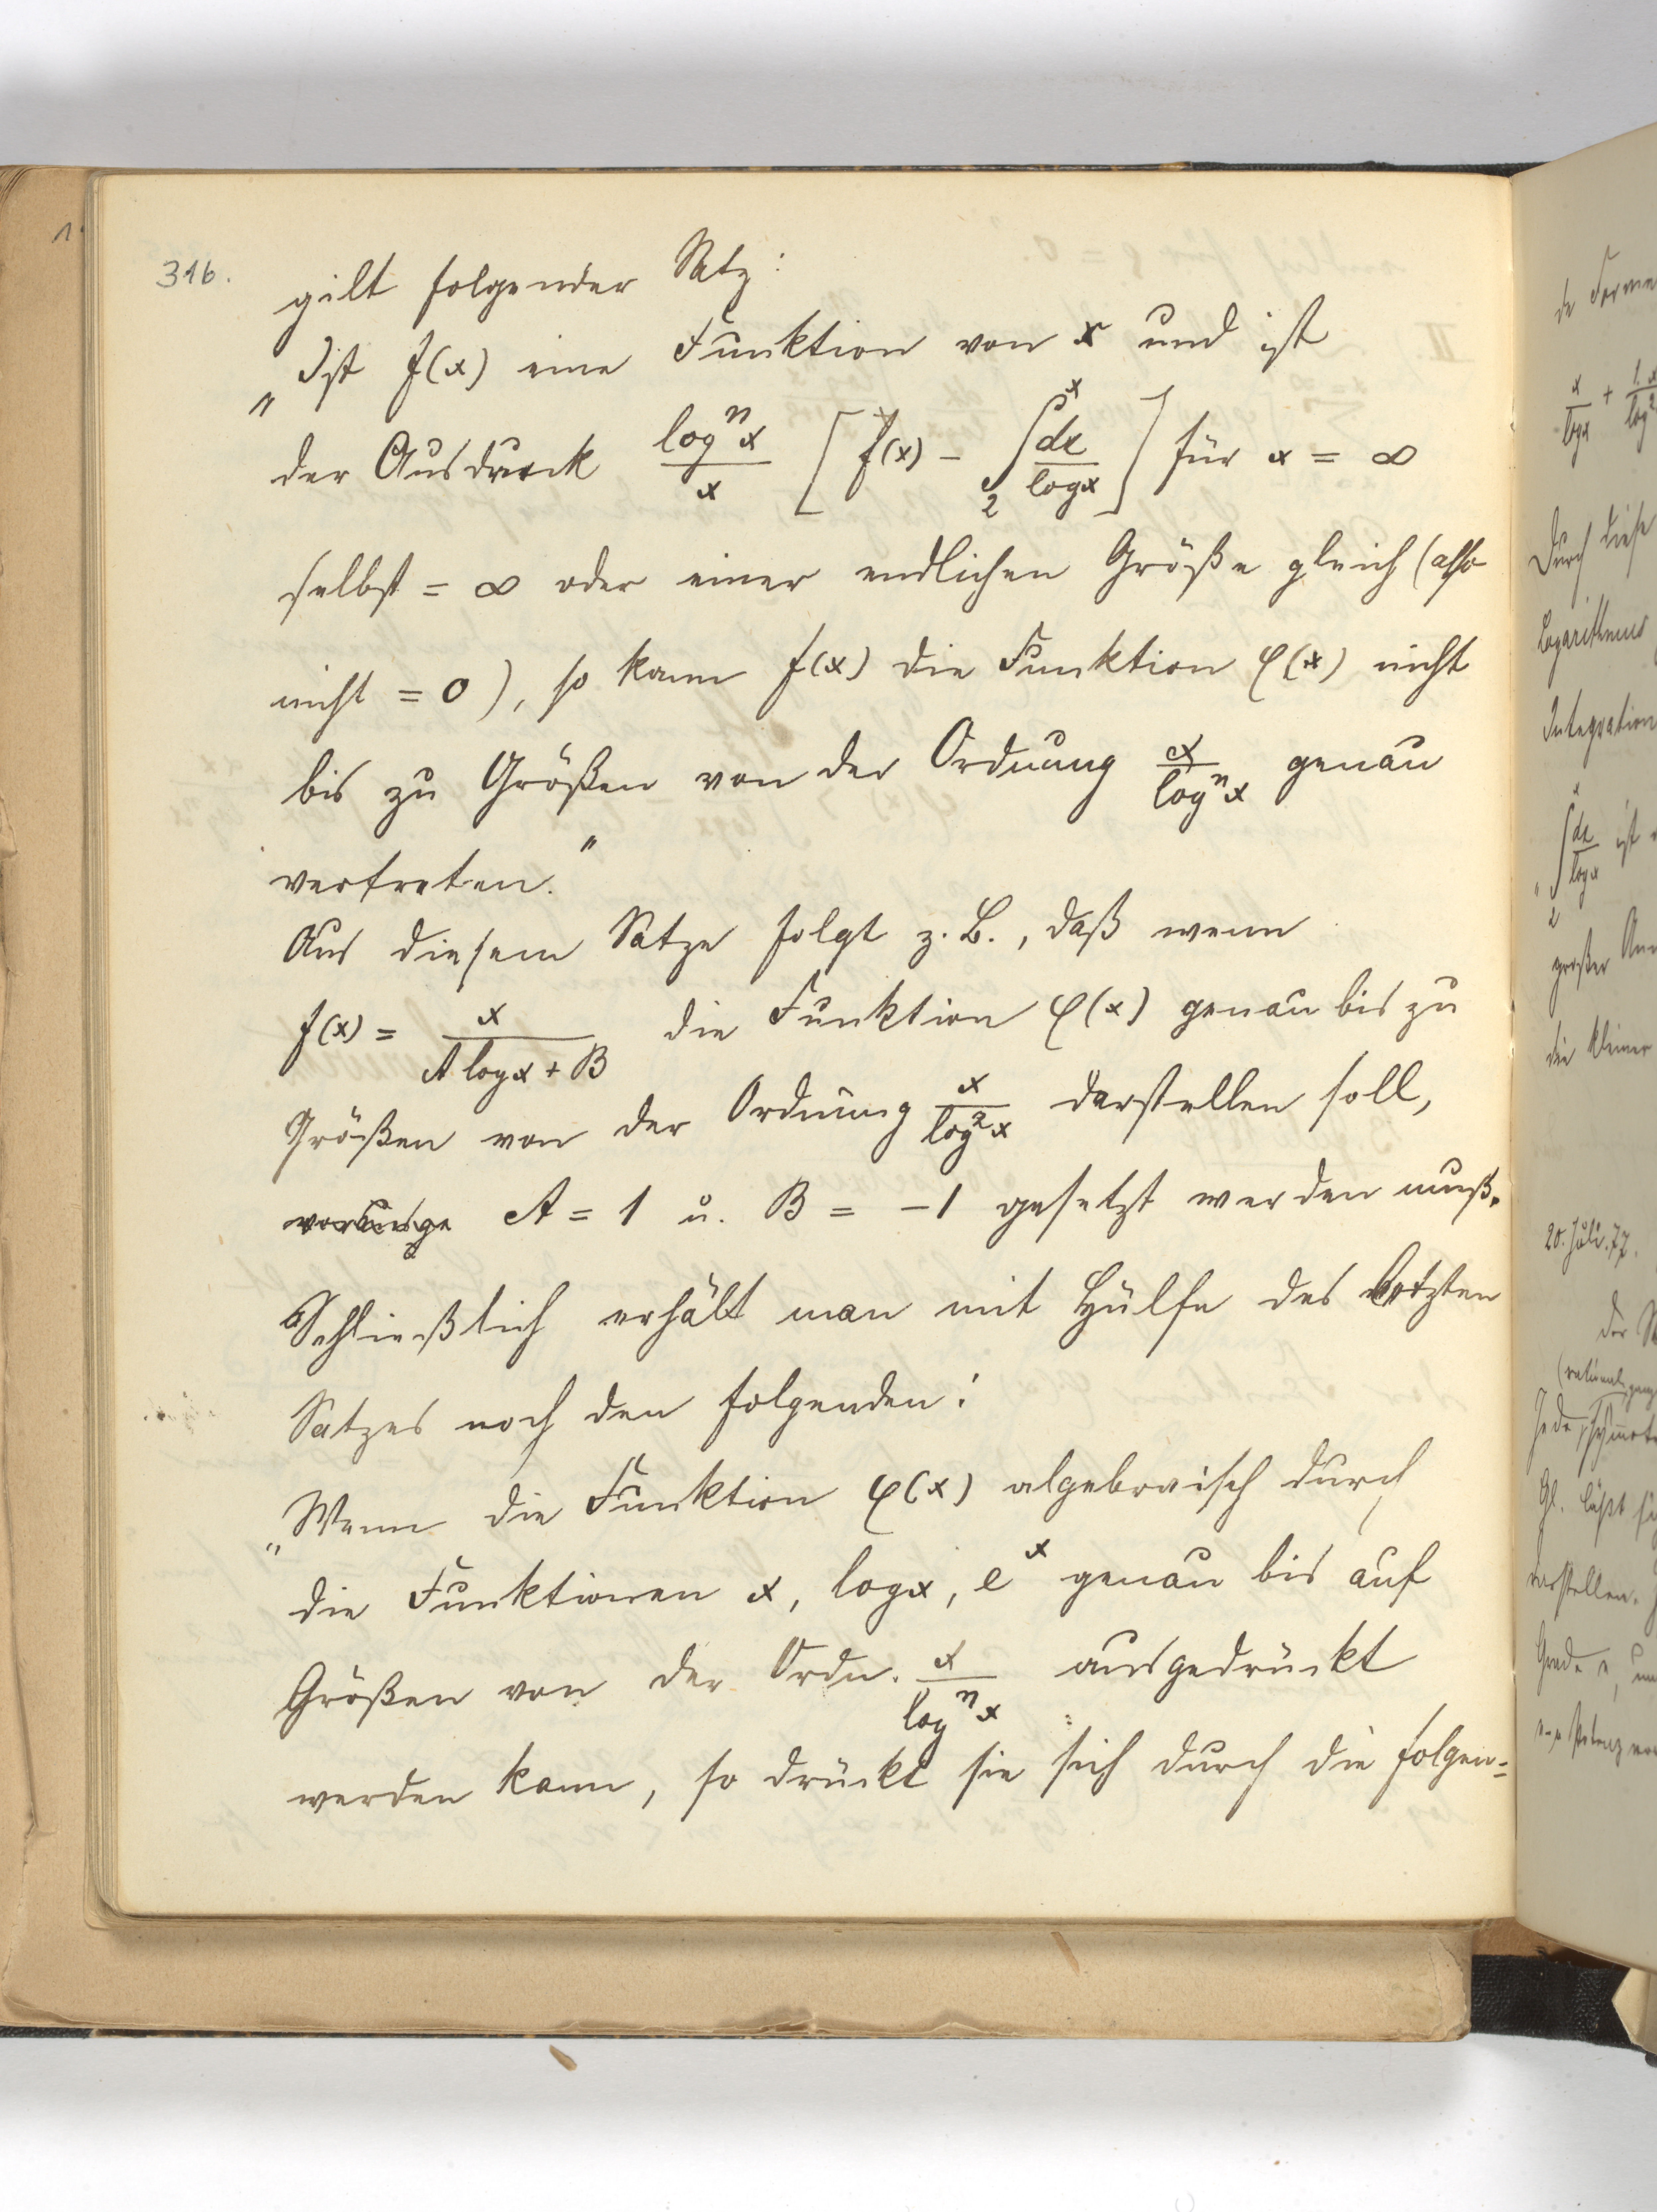 316.
gilt folgender Satz:
„Ist f(x) eine Funktion von x und ist
der Ausdruck log^n x / x [f(x) - ∫_2^x dx / log x] für x = ∞
selbst = ∞ oder einer endlichen Größe gleich (also
nicht = 0), so kann f(x) die Funktion φ(x) nicht
bis zu Größen von der Ordnung x / log^n x genau
vertreten."
Aus diesem Satze folgt z. B., daß wenn
f(x) = x / A log x + B die Funktion φ(x) genau bis zu
Größen von der Ordnung x / log^2 x darstellen soll,
A = 1 u. B = -1 gesetzt werden muß.
Schließlich erhält man mit Hülfe des letzten
Satzes noch den folgenden:
„Wenn die Funktion φ(x) algebraisch durch
die Funktionen x, log x, e^x genau bis auf
Größen von der Ordn. x / log^n x ausgedrückt
werden kann, so drückt sie sich durch die folgen=
de
x / log x +
Durch diese
Logarithmus
Integration
„∫_2^x dx / log x ist
großer
die kleiner
20. Juli. 77.
Der
Jede
Gl. läßt
darstellen.
Grade n,